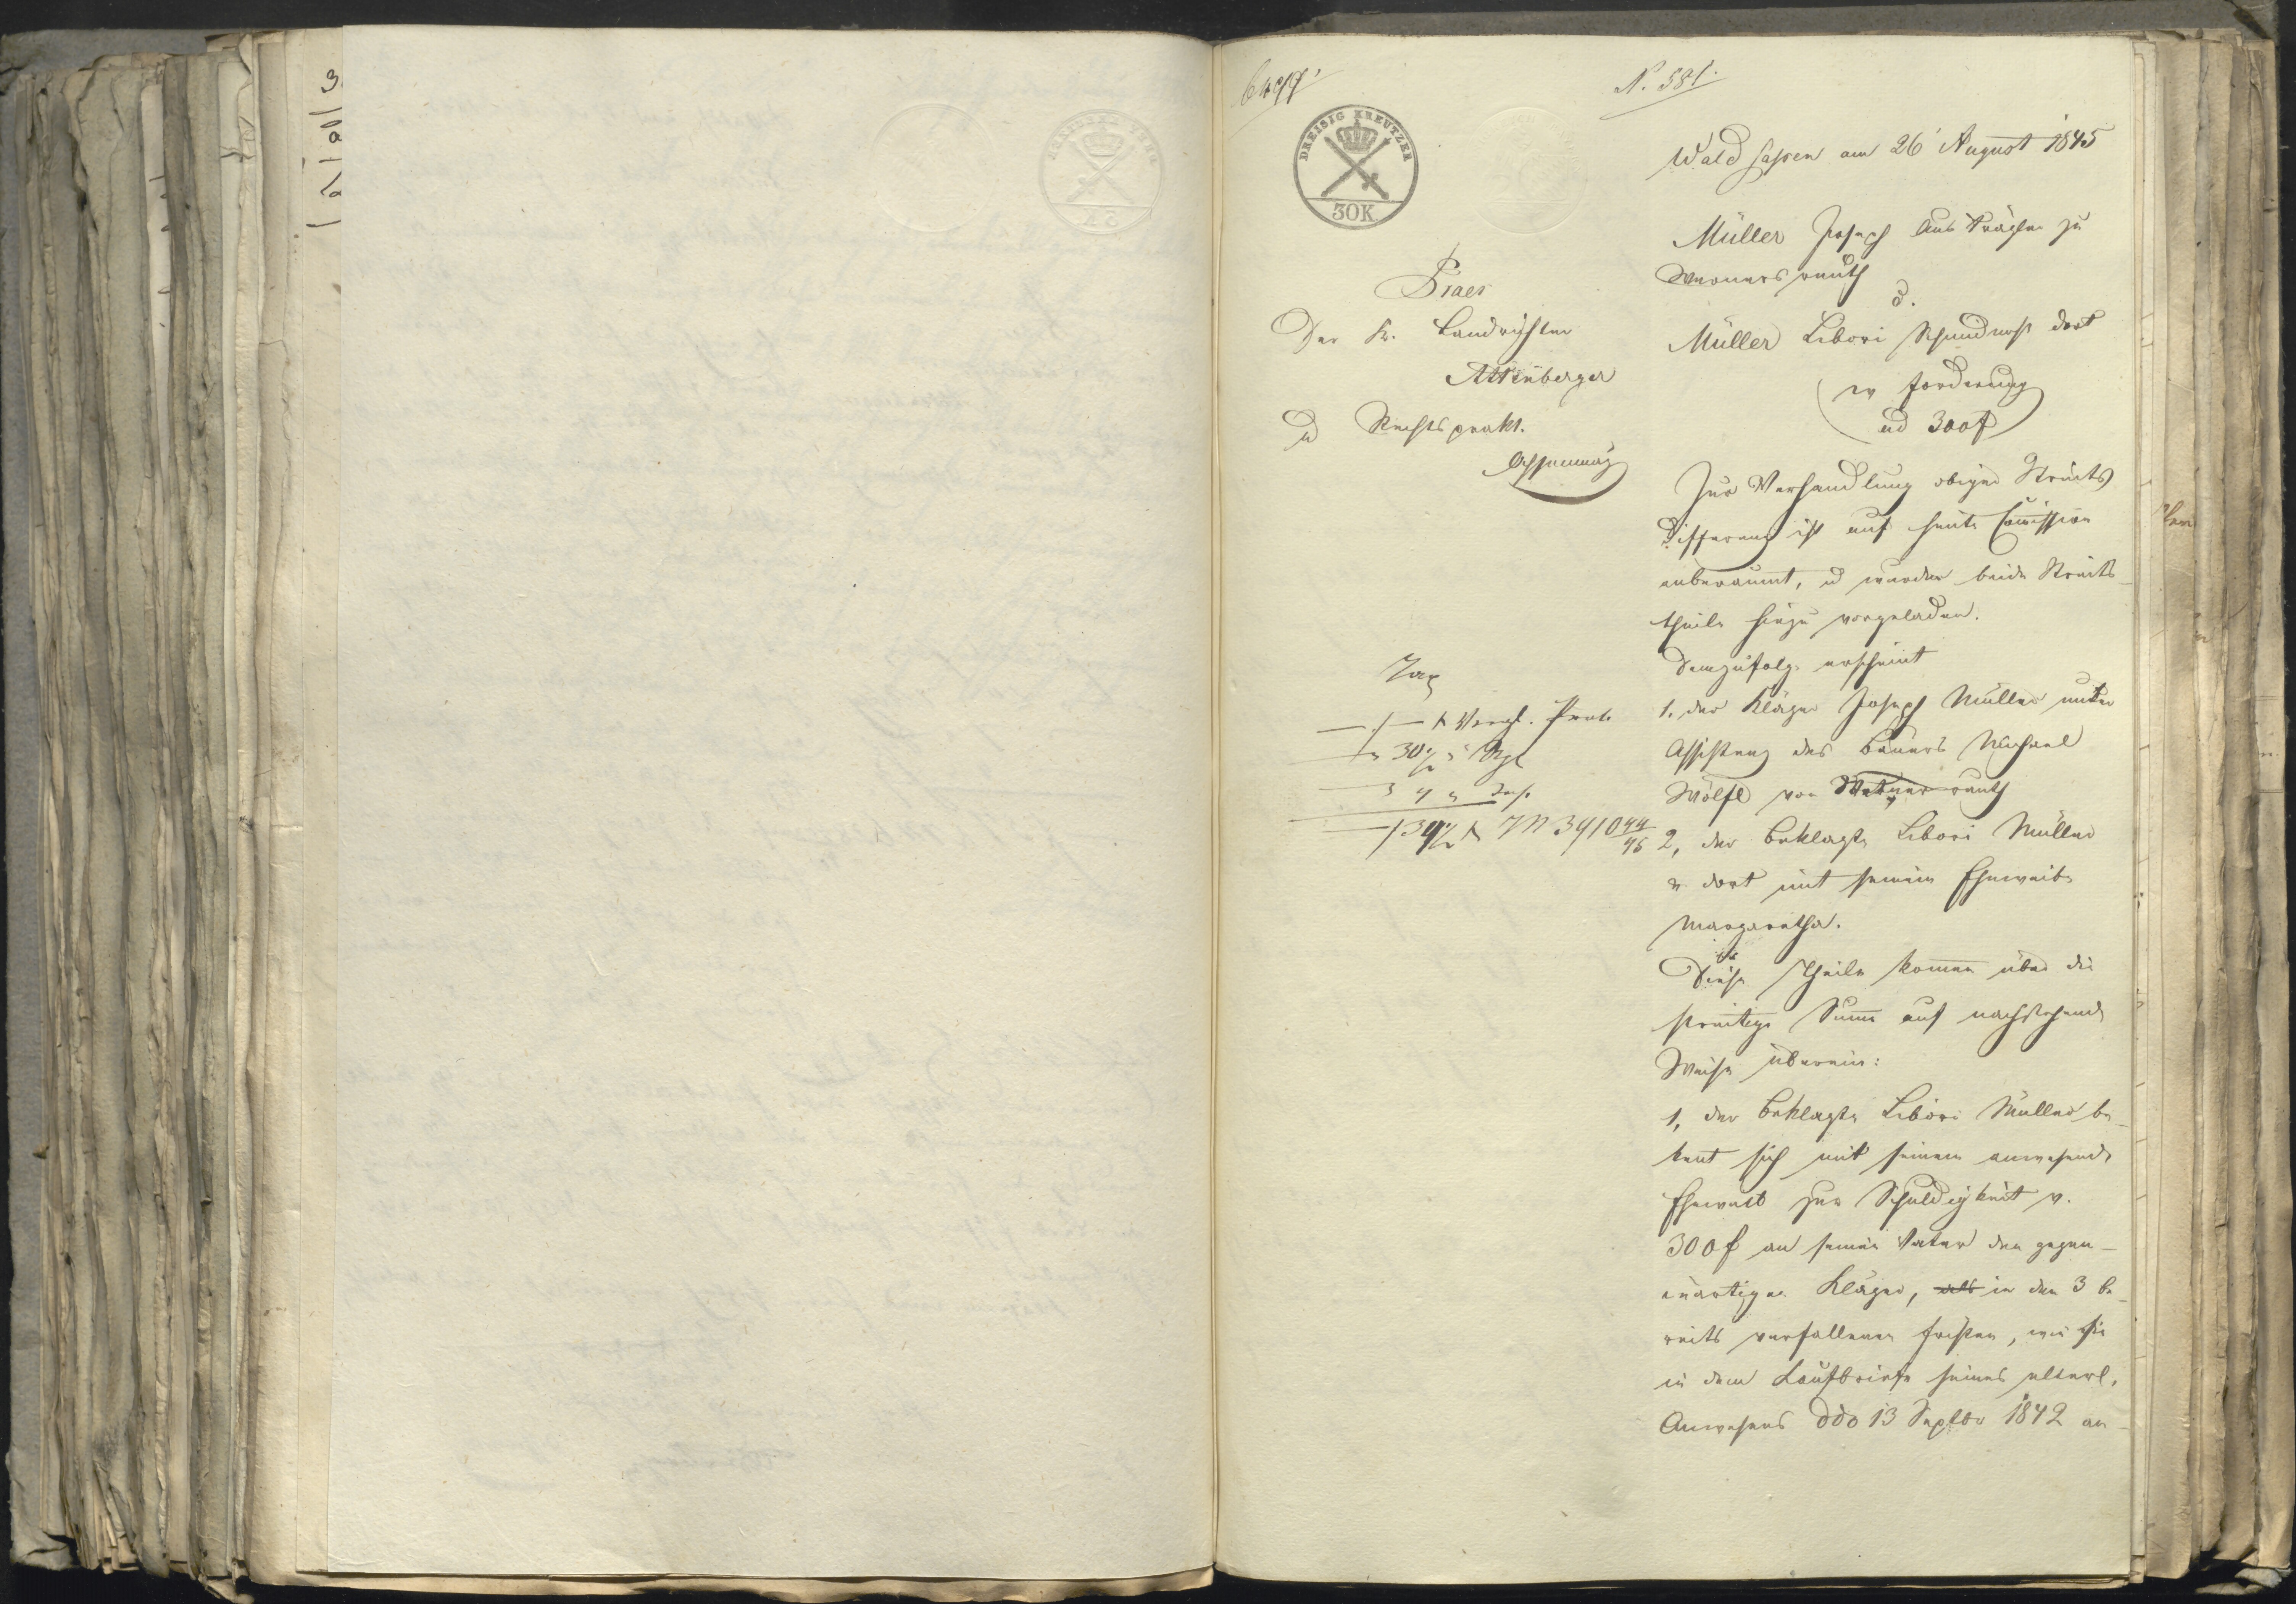 N. 581.
DREISIG KREUTZER
30K
Waldsassen am 26 August 1845
Müller Joseph Austrägler zu
Wernersreuth
Müller Libori Schneider dort
Praes
Der k. Landrichter
Attenberger
u Rechtsprakt.
pto Forderung
ad 300 f
Zur Verhandlung obiger Streits
Differenz ist auf heute Comission
anberaumt, u wurden beide Streits-
theile hiezu vorgeladen.
Demzufolge erscheint
1. der Kläger Joseph Müller unter
Assistenz des Bauers Michael
Wölfl von Wernersreuth
2, der Beklagte Libori Müller
v dort mit seinem Eheweibe
Margaretha.
Diese Theile komen über die
streitige Sume auf nachstehende
Weise überein:
1, der Beklagte Libori Müller be-
kent sich mit seinem anwesende
Eheweib zur Schuldigkeit v.
300 f an seinen Vater den gegen-
wärtigen Kläger, als in den 3 be-
reits verfallenen Fristen, wie sie
in dem Kaufbriefe seines elterl.
Anwesens ddo 13 Septbr 1842 an-
Tax
1 f Vergl. Prot.
30 1/2
1 39 1/2 f 3910 44/45